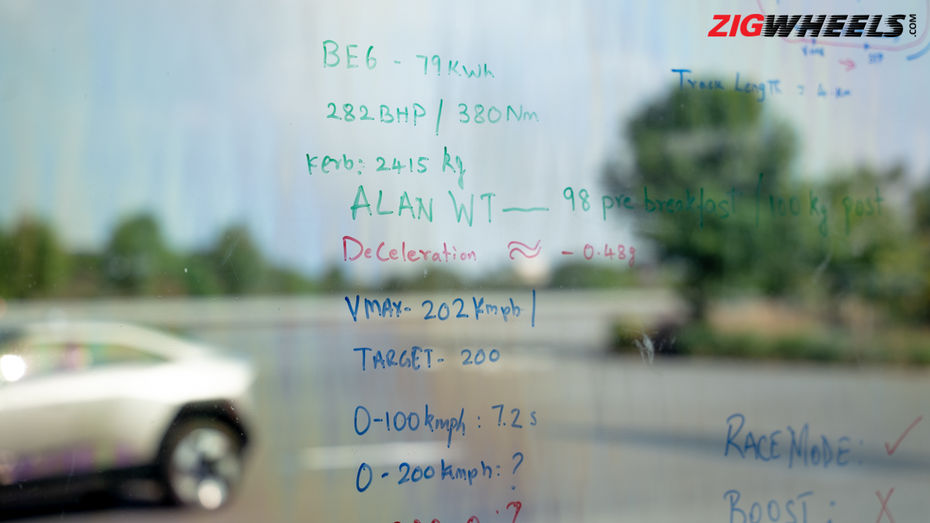 ZIGWHEELS.COM
Track Length = 4 km
BE6 - 79 Kwh
282BHP / 380Nm
Kerb: 2415 kg
ALAN WT — 98 pre breakfast / 100 kg post
DeCeleration ≈ - 0.48g
VMAX- 202 Kmph |
TARGET- 200
0-100 kmph: 7.2 s
0 - 200 kmph: ?
RACE MODE: ✓
BOOST: X